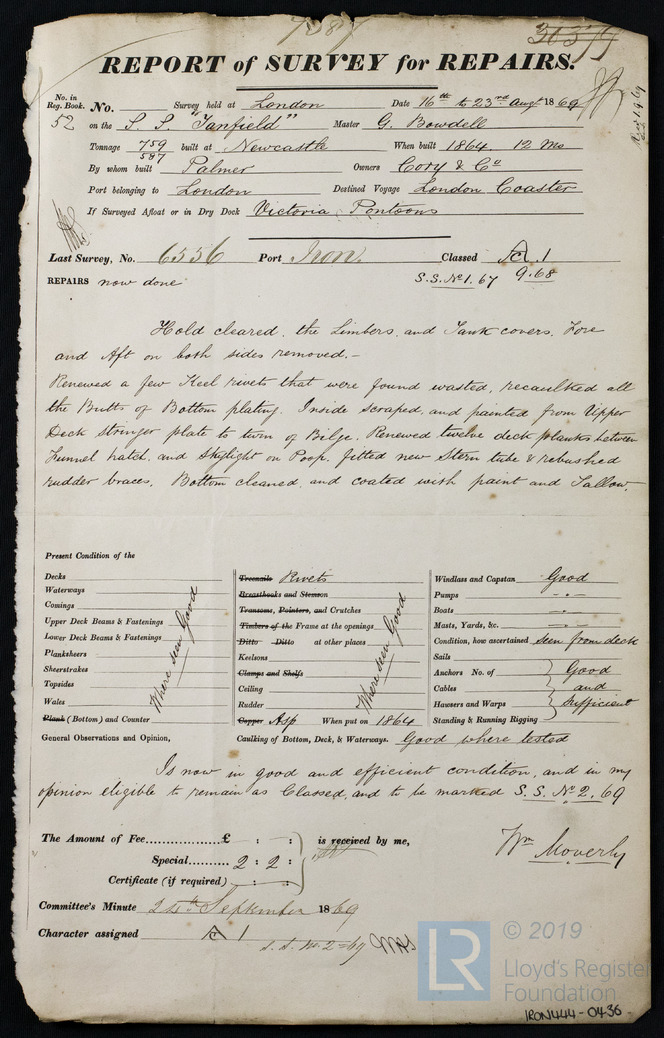 7587
REPORT of SURVEY for REPAIRS.
Rec 1.9.69
No. in Reg. Book. No. Survey held at London Date 16th to 23rd Augt 1869
52 on the S. S. "Tanfield" Master G. Bowdell
Tonnage 759 built at Newcastle When built 1864. 12 Mo
587
By whom built Palmer Owners Cory & Co
Port belonging to London Destined Voyage London Coaster
If Surveyed Afloat or in Dry Dock Victoria Pontoons
Last Survey, No. 6556 Port Iron. Classed A 1
S.S. No 1. 67 9.68
REPAIRS now done
Hold cleared, the Limbers and Tank covers, Fore
and Aft on both sides removed.-
Renewed a few Keel rivets that were found wasted, recaulked all
the Butts of Bottom plating. Inside scraped, and painted from Upper
Deck stringer plate to turn of Bilge. Renewed twelve deck planks between
Funnel hatch, and skylight on Poop, fitted new Stern tube & rebushed
rudder braces. Bottom cleaned, and coated with paint and Tallow.
Present Condition of the
Decks
Waterways
Comings
Upper Deck Beams & Fastenings
Lower Deck Beams & Fastenings
Planksheers
Sheerstrakes
Topsides
Wales
Plank (Bottom) and Counter
Where seen Good
General Observations and Opinion,
Treenails Rivets
Breasthooks and Stemson
Transoms, Pointers, and Crutches
Timbers of the Frame at the openings
Ditto Ditto at other places
Keelsons
Clamps and Shelfs
Ceiling
Rudder
Copper Asp When put on 1864
Where seen Good
Caulking of Bottom, Deck, & Waterways. Good where tested
Windlass and Capstan Good
Pumps -"-
Boats -"-
Masts, Yards, &c. -"-
Condition, how ascertained seen from deck
Sails
Anchors No. of Good
Cables and
Hawsers and Warps Sufficient
Standing & Running Rigging
Is now in good and efficient condition, and in my
opinion eligible to remain as Classed, and to be marked S. S. No 2. 69
The Amount of Fee £ : : is received by me,
Special 2 : 2 :
Certificate (if required) : :
Wm Moverly
Committee's Minute 24th September 1869
Character assigned A 1
S. S. No 2 = 69
LR
© 2019
Lloyd's Register
Foundation
IRON444-0436